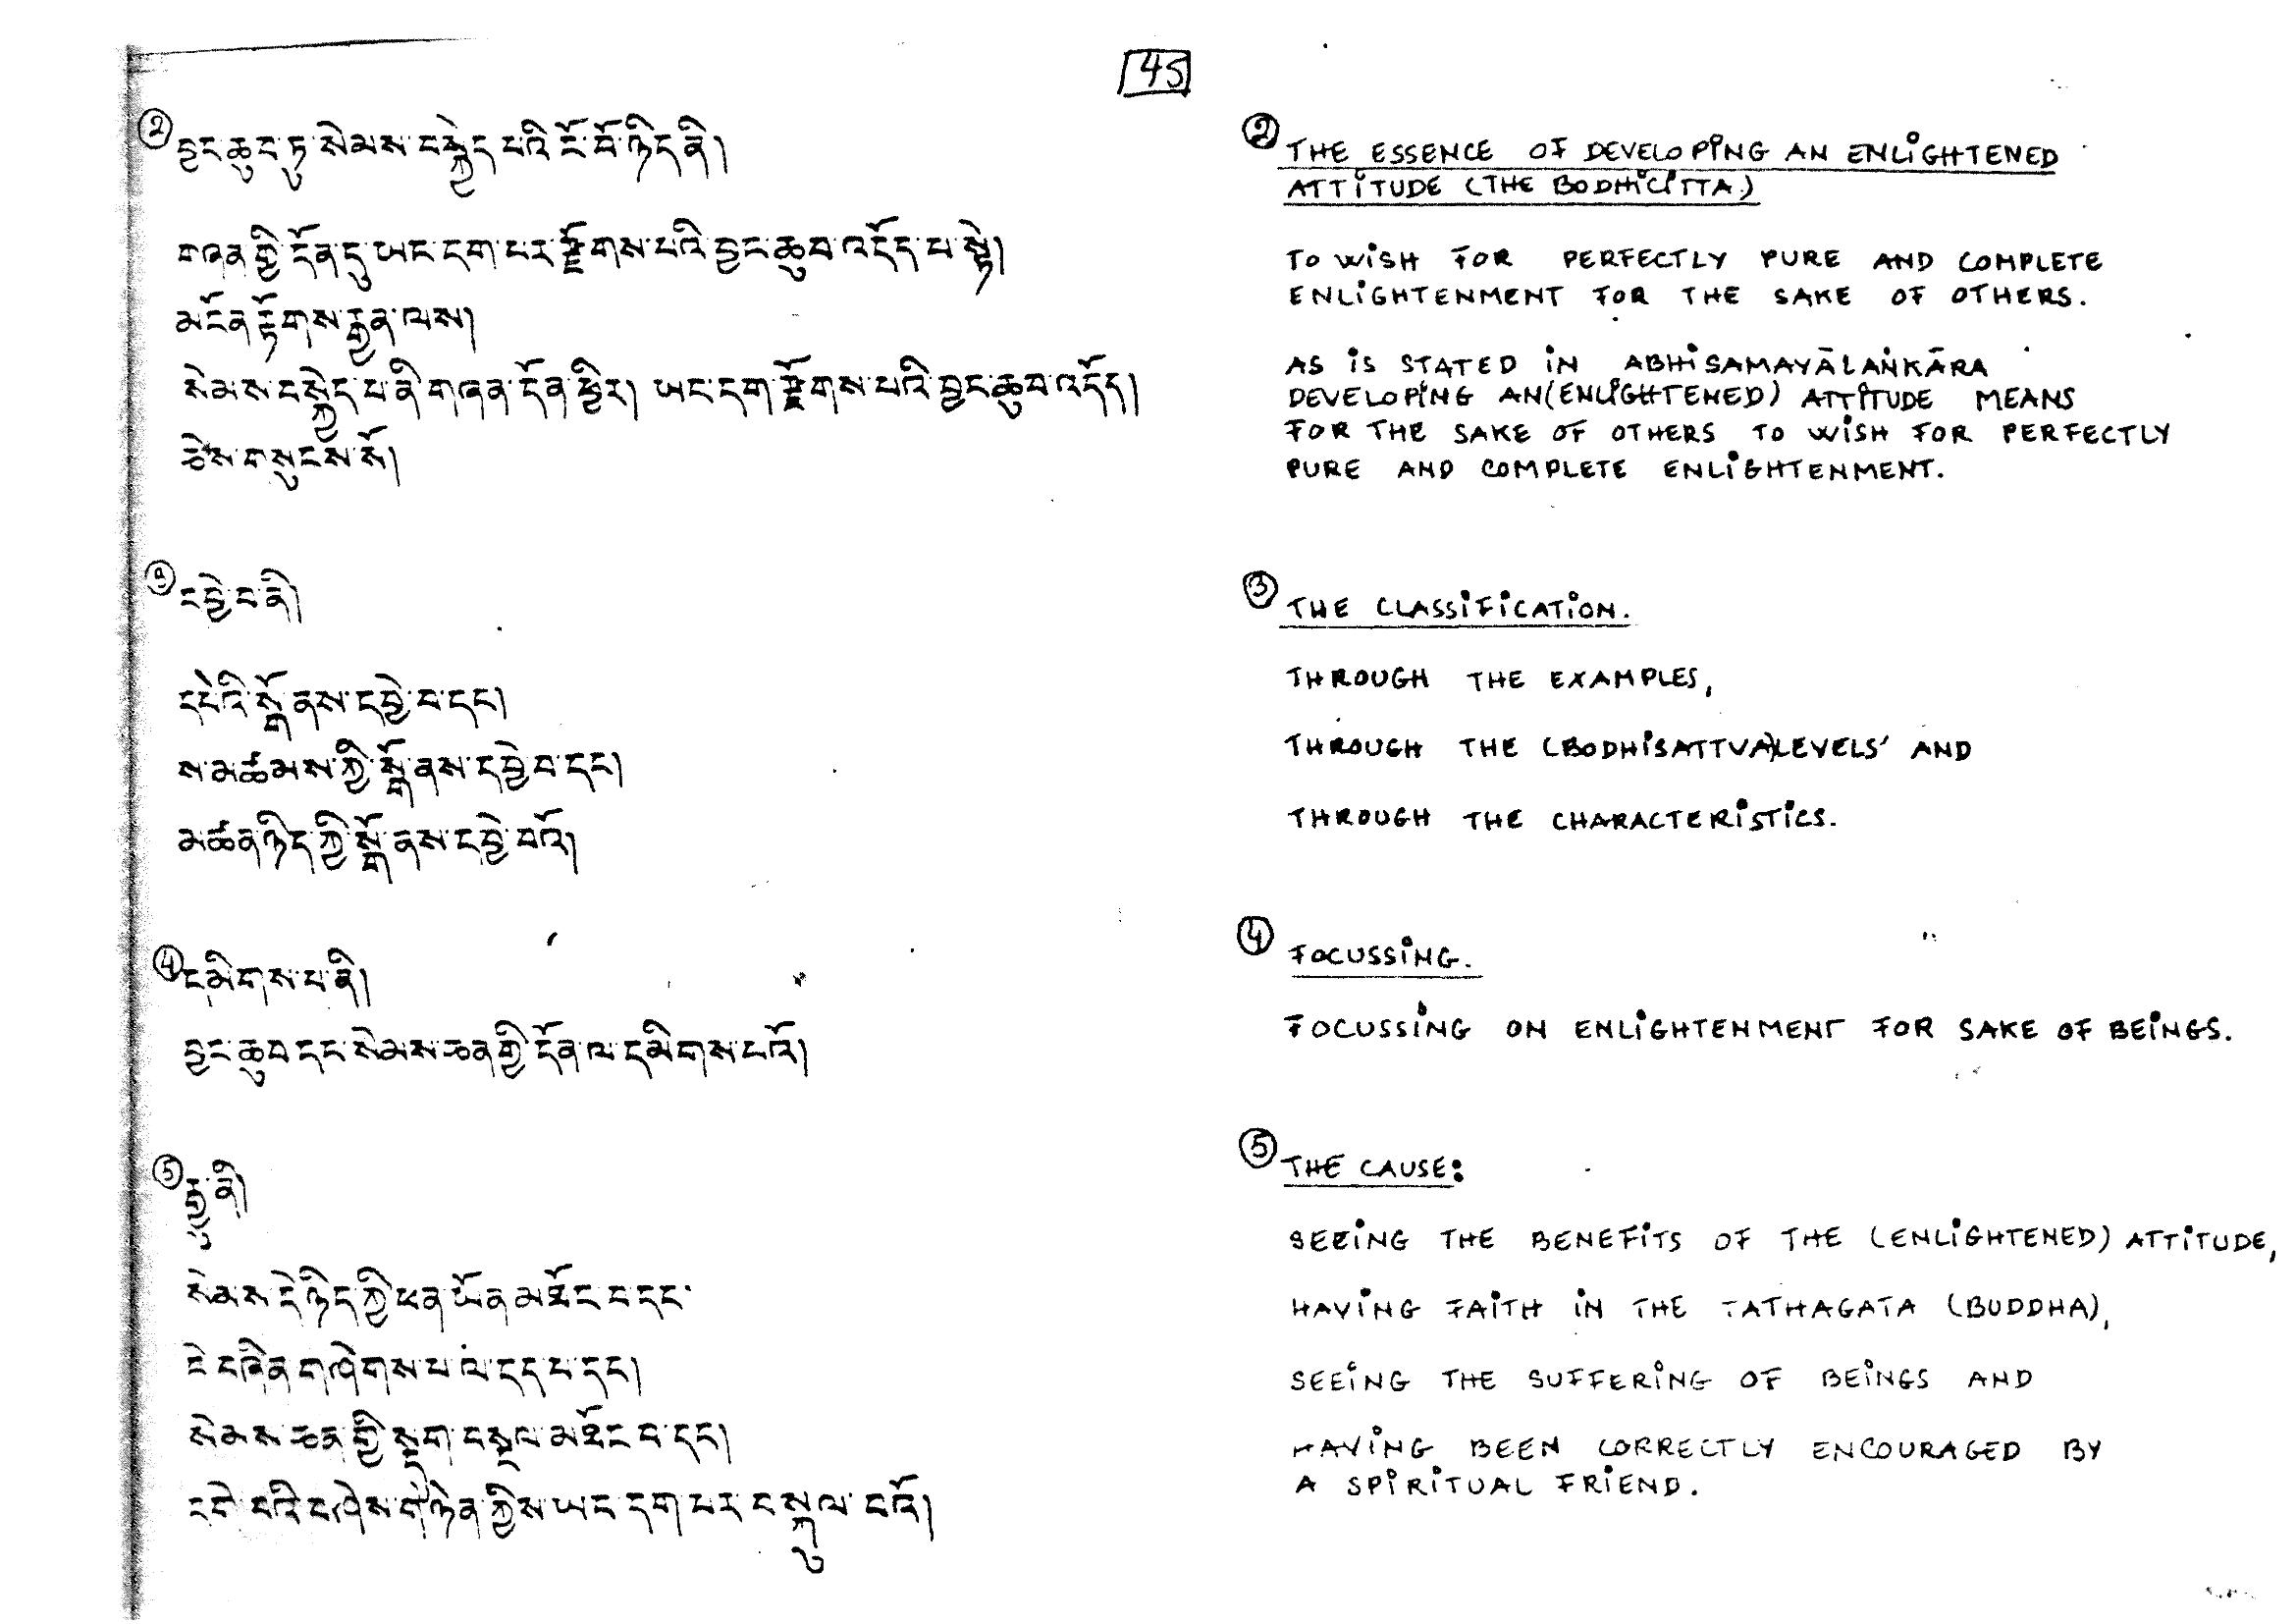 45
② བྱང་ཆུབ་ཏུ་སེམས་བསྐྱེད་པའི་ངོ་བོ་ཉིད་ནི།
གཞན་གྱི་དོན་དུ་ཡང་དག་པར་རྫོགས་པའི་བྱང་ཆུབ་འདོད་པ་སྟེ།
མངོན་རྟོགས་རྒྱན་ལས།
སེམས་བསྐྱེད་པ་ནི་གཞན་དོན་ཕྱིར། ཡང་དག་རྫོགས་པའི་བྱང་ཆུབ་འདོད།
ཅེས་གསུངས་སོ།
③ དབྱེ་བ་ནི།
དཔེའི་སྒོ་ནས་དབྱེ་བ་དང།
ས་མཚམས་ཀྱི་སྒོ་ནས་དབྱེ་བ་དང།
མཚན་ཉིད་ཀྱི་སྒོ་ནས་དབྱེ་བའོ།
④ དམིགས་པ་ནི།
བྱང་ཆུབ་དང་སེམས་ཅན་གྱི་དོན་ལ་དམིགས་པའོ།
⑤ རྒྱུ་ནི།
སེམས་དེ་ཉིད་ཀྱི་ཕན་ཡོན་མཐོང་བ་དང་
དེ་བཞིན་གཤེགས་པ་ལ་དད་པ་དང།
སེམས་ཅན་གྱི་སྡུག་བསྔལ་མཐོང་བ་དང།
དགེ་བའི་བཤེས་གཉེན་གྱིས་ཡང་དག་པར་བསྐུལ་བའོ།
② THE ESSENCE OF DEVELOPING AN ENLIGHTENED
ATTITUDE (THE BODHICITTA)
TO WISH FOR PERFECTLY PURE AND COMPLETE
ENLIGHTENMENT FOR THE SAKE OF OTHERS.
AS IS STATED IN ABHISAMAYĀLAṄKĀRA
DEVELOPING AN (ENLIGHTENED) ATTITUDE MEANS
FOR THE SAKE OF OTHERS TO WISH FOR PERFECTLY
PURE AND COMPLETE ENLIGHTENMENT.
③ THE CLASSIFICATION.
THROUGH THE EXAMPLES,
THROUGH THE (BODHISATTVA) LEVELS' AND
THROUGH THE CHARACTERISTICS.
④ FOCUSSING.
FOCUSSING ON ENLIGHTENMENT FOR SAKE OF BEINGS.
⑤ THE CAUSE:
SEEING THE BENEFITS OF THE (ENLIGHTENED) ATTITUDE,
HAVING FAITH IN THE TATHAGATA (BUDDHA),
SEEING THE SUFFERING OF BEINGS AND
HAVING BEEN CORRECTLY ENCOURAGED BY
A SPIRITUAL FRIEND.